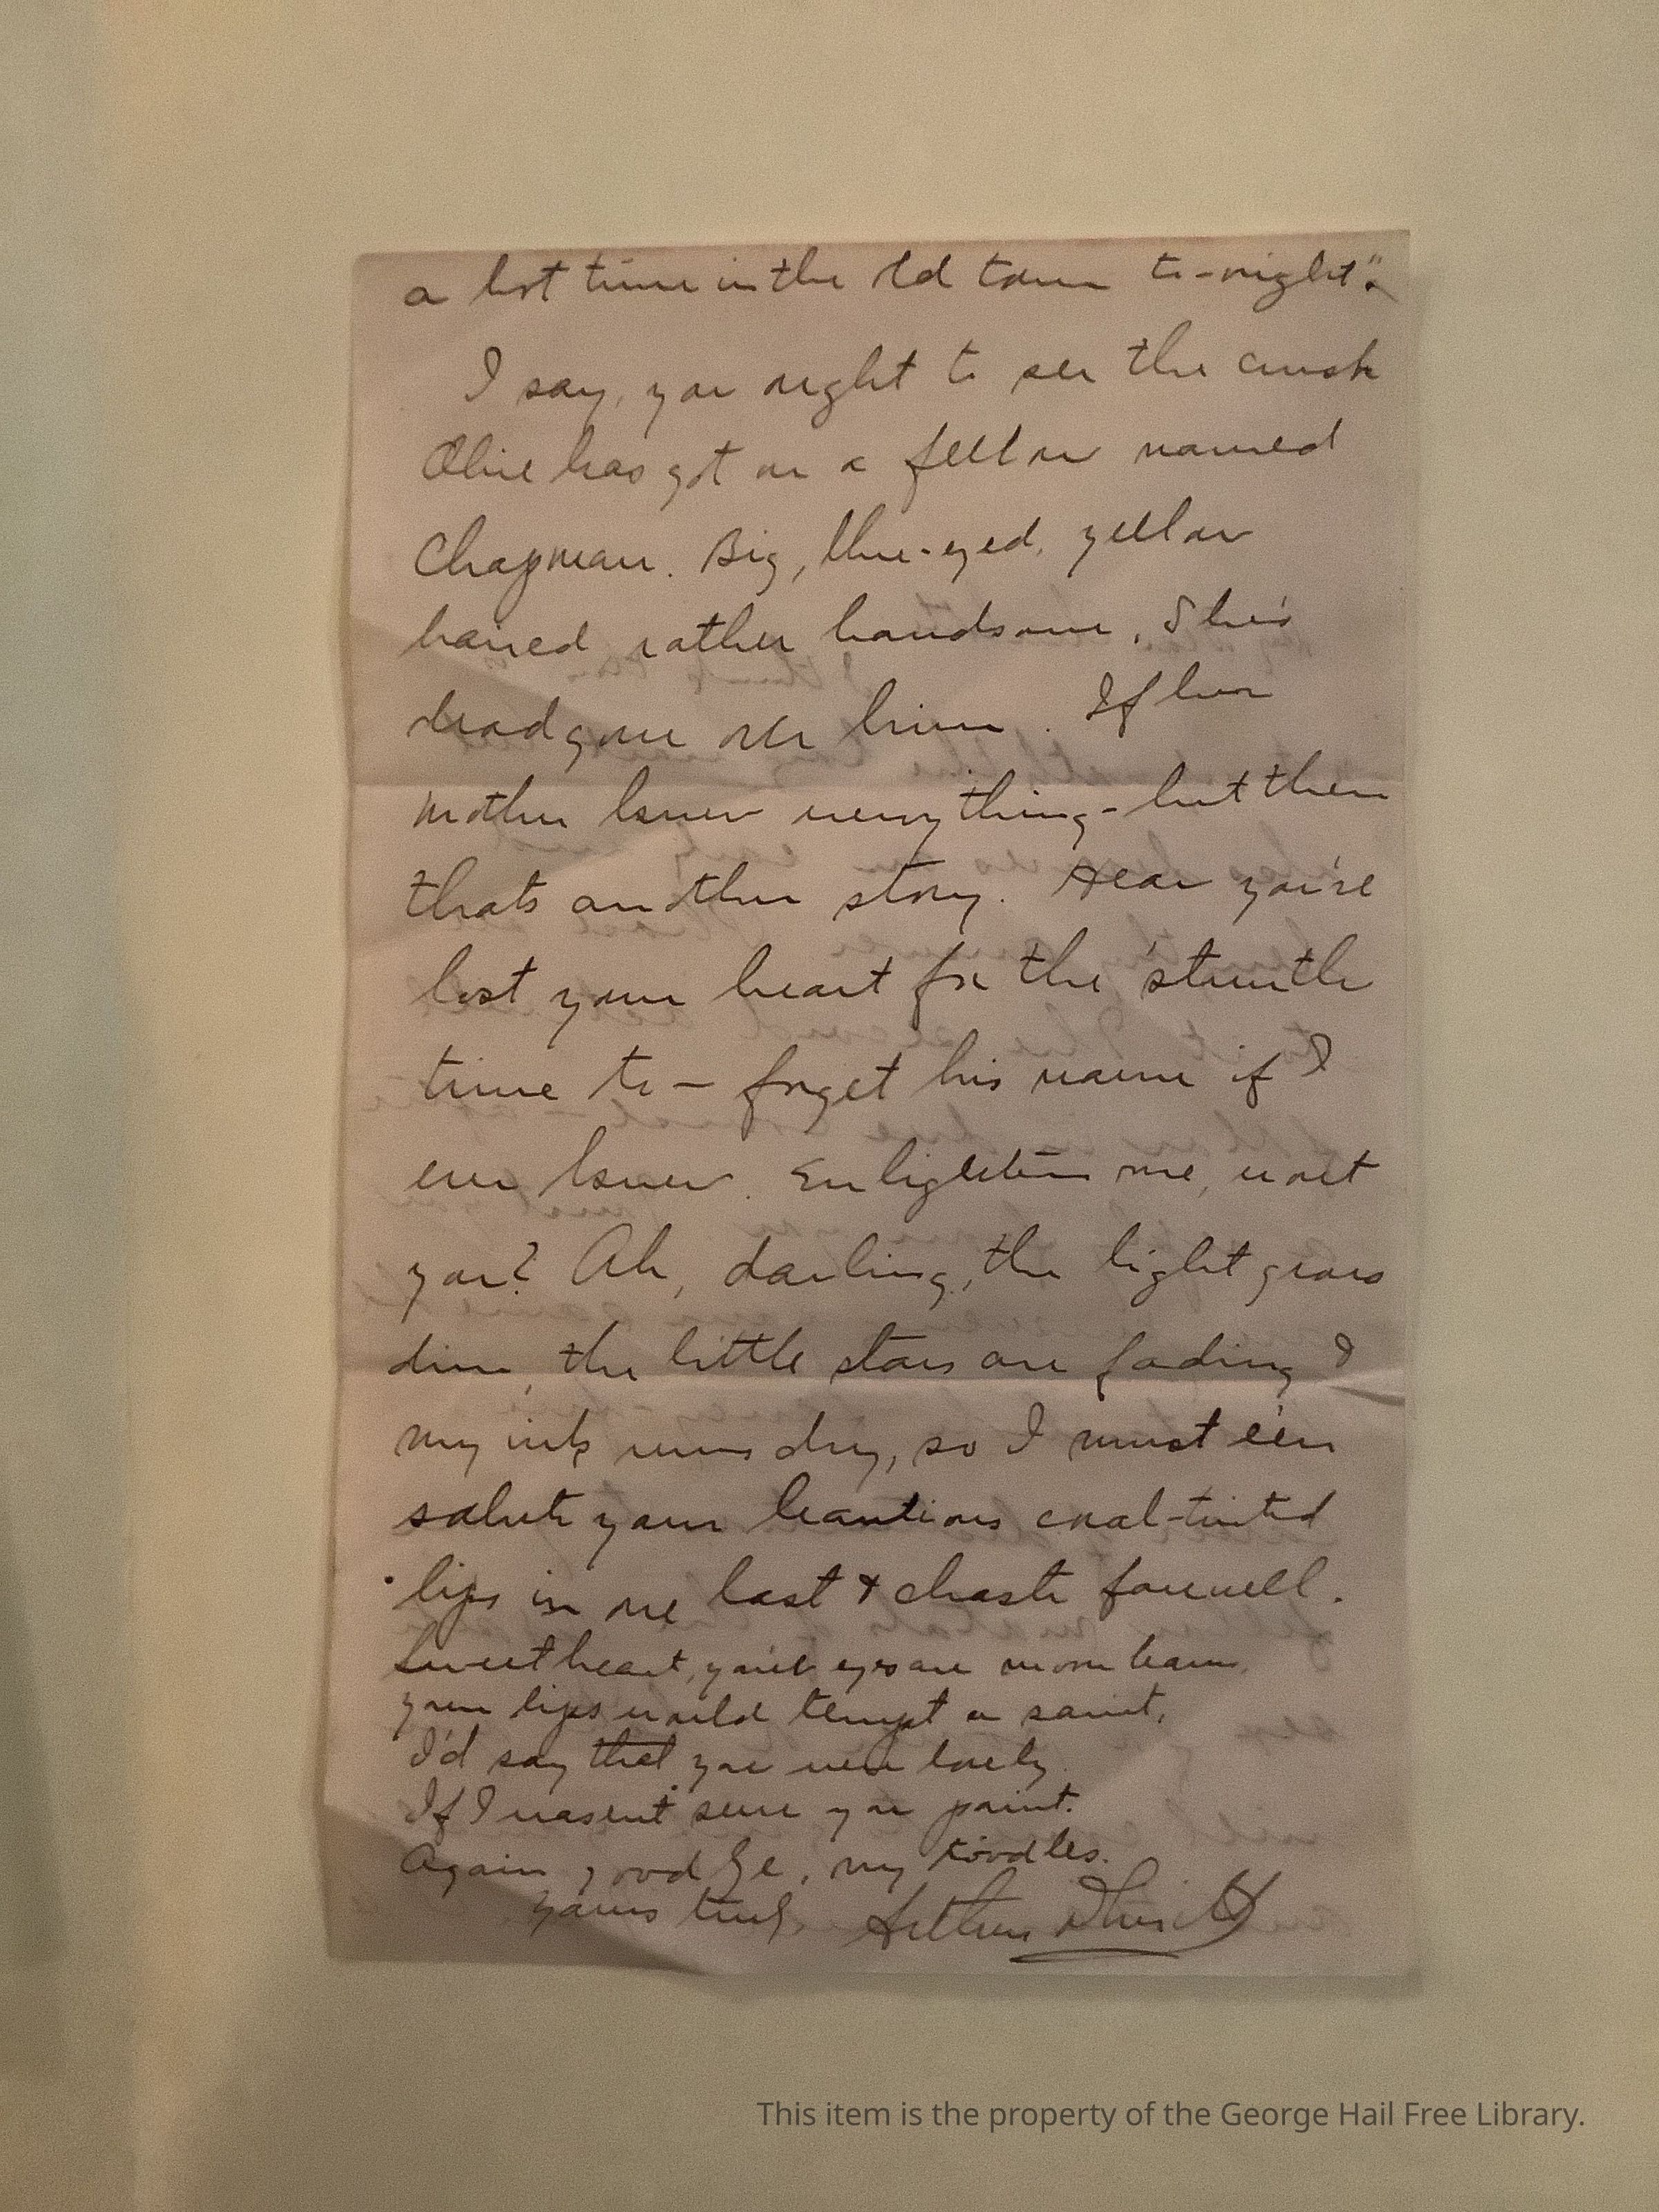 a hot time in the old town to-night".
I say, you ought to see the crush
Olive has got on a fellow named
Chapman. Big, blue-eyed, yellow
haired rather handsome. She's
dead gone over him. If her
mother knew everything - but then
thats another story. Hear you've
lost your heart for the 'steenth
time to - forget his name if I
ever knew. Enlighten me, wont
you? Ah, darling, the light grows
dim, the little stars are fading &
my ink runs dry, so I must e'en
salute your beauteous coral-tinted
lips in one last & chaste farewell.
Sweetheart, your eyes are moon beams,
your lips would tempt a saint,
I'd say that you were lovely
If I wasent sure you paint.
Again good bye, my toodles.
Yours truly, Arthur
This item is the property of the George Hail Free Library.